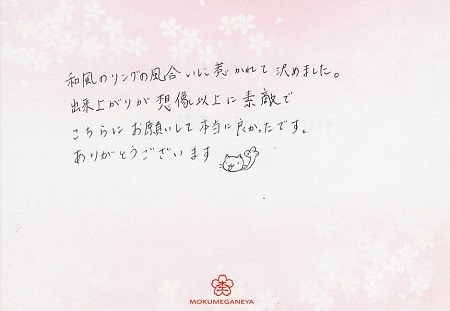 和風のリングの風合いに惹かれて決めました。
出来上がりが想像以上に素敵で
こちらにお願いして本当に良かったです。
ありがとうございます
MOKUMEGANEYA